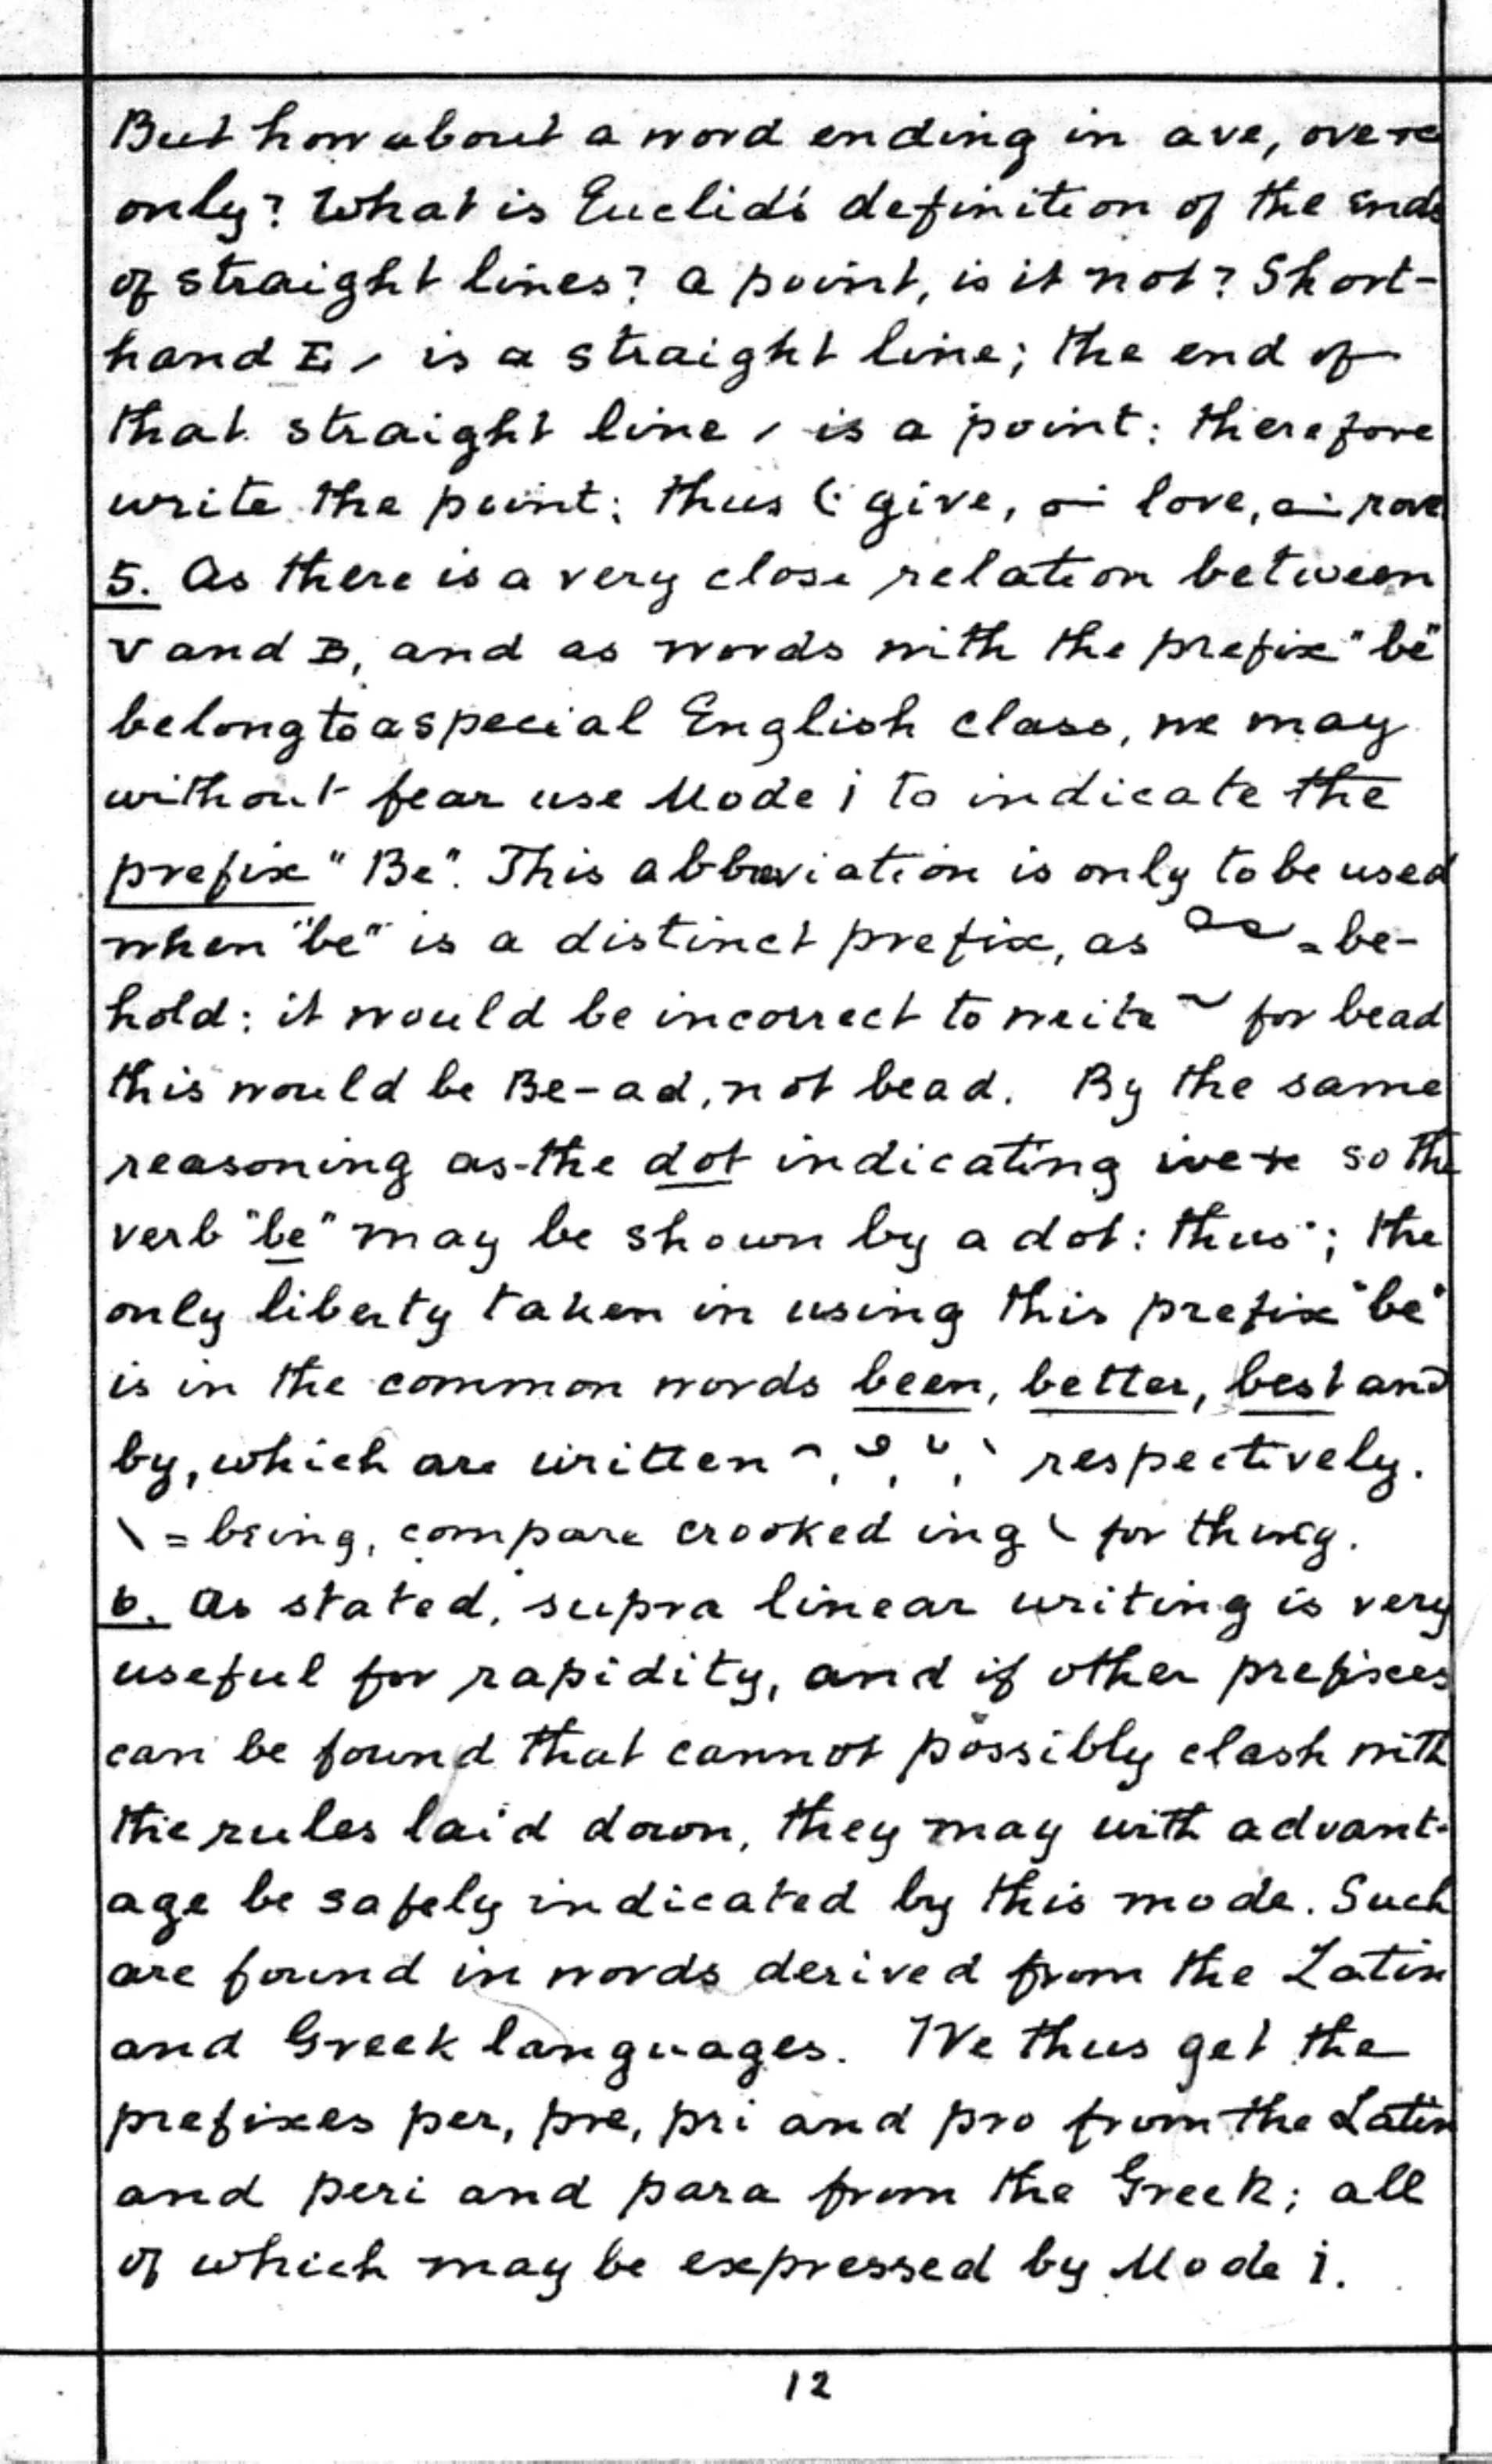 But how about a word ending in ave, ove &c
only? What is Euclid's definition of the ends
of straight lines? a point, is it not? Short-
hand E, is a straight line; the end of
that straight line, is a point: therefore
write the point: thus give, love, rove
5. As there is a very close relation between
V and B, and as words with the prefix "be"
belong to a special English class, we may
without fear use Mode i to indicate the
prefix "Be". This abbreviation is only to be used
when "be" is a distinct prefix, as = be-
hold: it would be incorrect to write for bead
this would be Be-ad, not bead. By the same
reasoning as the dot indicating ive &c so the
verb "be" may be shown by a dot: thus ˙; the
only liberty taken in using this prefix "be"
is in the common words been, better, best and
by, which are written respectively.
\ = being, compare crooked ing for thing.
6. As stated, supra linear writing is very
useful for rapidity, and if other prefixes
can be found that cannot possibly clash with
the rules laid down, they may with advant-
age be safely indicated by this mode. Such
are found in words derived from the Latin
and Greek languages. We thus get the
prefixes per, pre, pri and pro from the Latin
and peri and para from the Greek; all
of which may be expressed by Mode i.
12